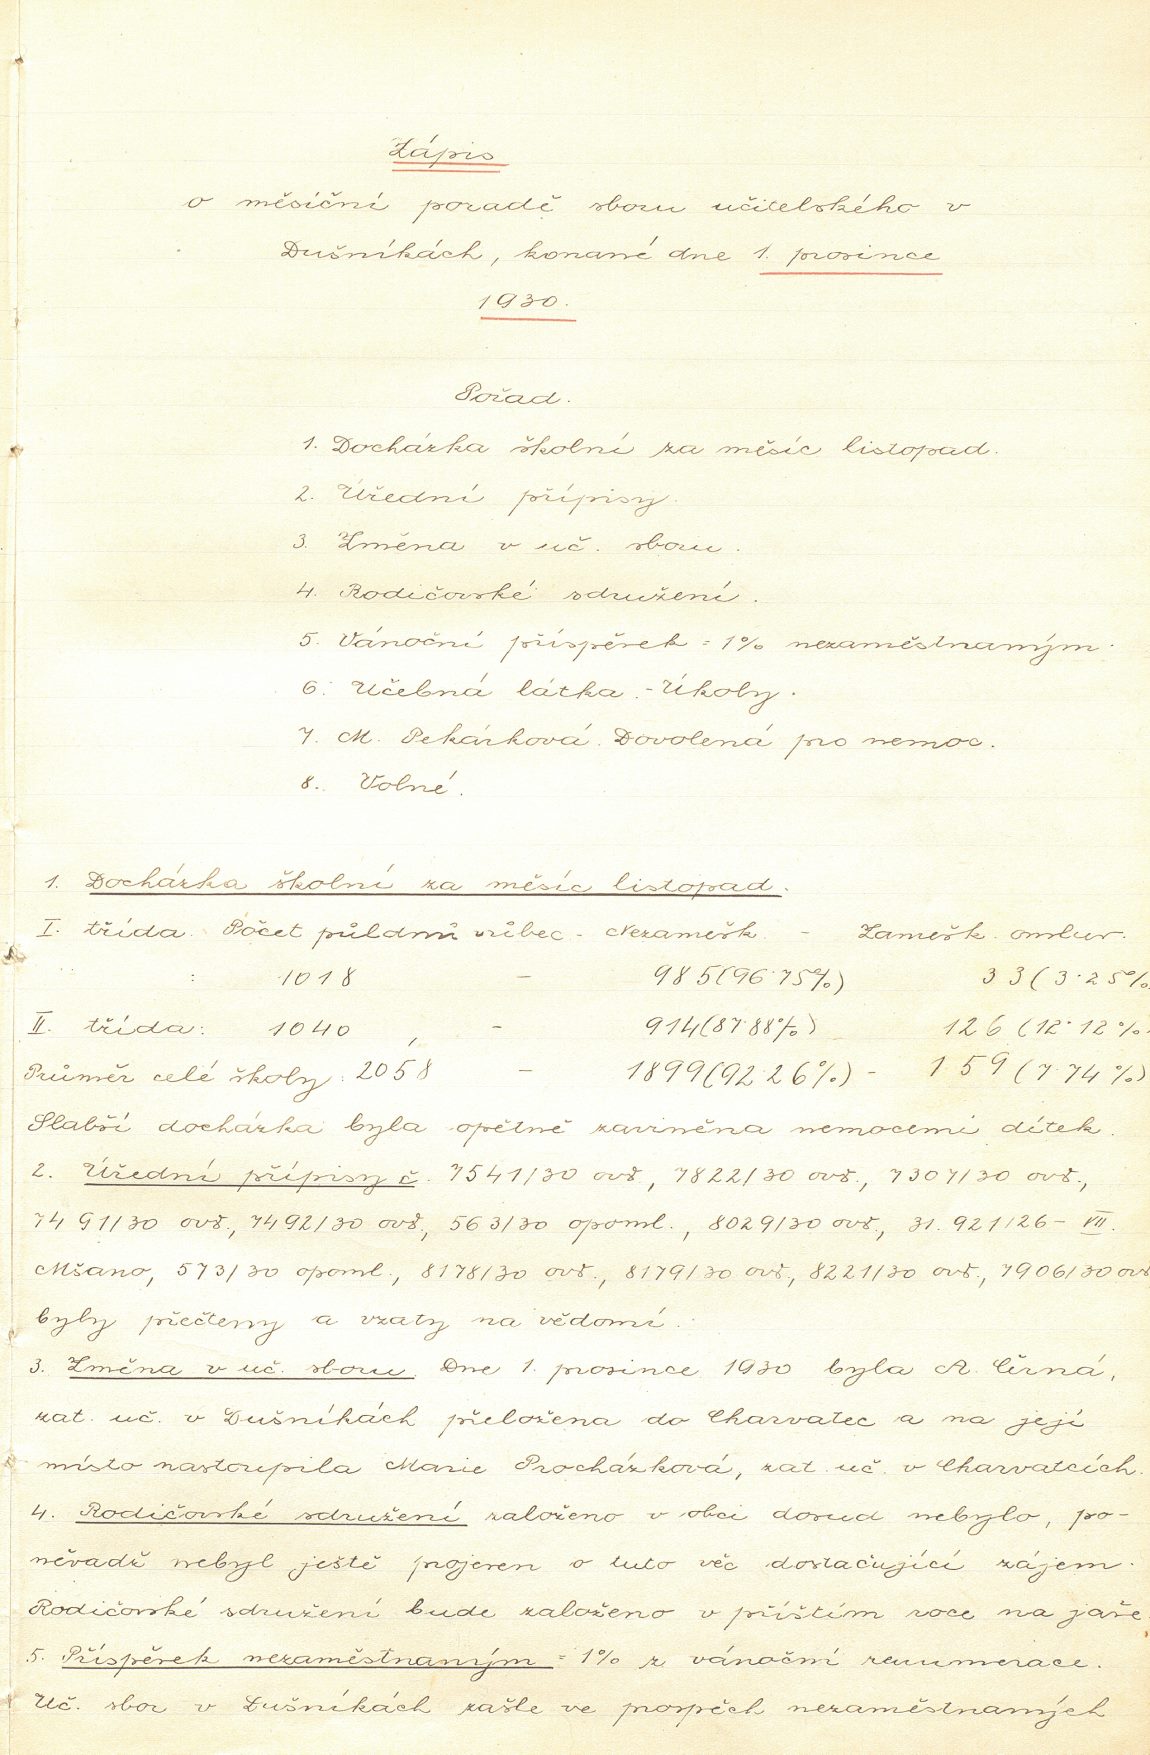 Zápis
o měsíční poradě sboru učitelského v
Dušníkách, konané dne 1. prosince
1930.
Pořad.
1. Docházka školní za měsíc listopad.
2. Úřední přípisy.
3. Změna v uč. sboru.
4. Rodičovské sdružení.
5. Vánoční příspěvek = 1% nezaměstnaným.
6. Učebná látka. - Úkoly.
7. M. Pekárková. Dovolená pro nemoc.
8. Volné.
1. Docházka školní za měsíc listopad.
I. třída. Počet půldnů vůbec - Nezamešk. - Zamešk. omluv.
: 1018 - 985(96·75%) 33(3·25%
II. třída: 1040, - 914(87·88%) 126 (12·12%
Průměr celé školy: 2058 - 1899(92·26%) - 159 (7·74%)
Slabší docházka byla opětně zaviněna nemocemi dítek.
2. Úřední přípisy č. 7541/30 ovš., 7822/30 ovš., 7307/30 ovš.,
7491/30 ovš., 7492/30 ovš., 563/30 opoml., 8029/30 ovš., 31.921/26 - VII.
Mšano, 573/30 opoml., 8178/30 ovš., 8179/30 ovš., 8221/30 ovš., 7906/30 ovš
byly přečteny a vzaty na vědomí.
3. Změna v uč. sboru. Dne 1. prosince 1930 byla A. Černá,
zat. uč. v Dušníkách přeložena do Charvatec a na její
místo nastoupila Marie Procházková, zat. uč. v Charvatcích.
4. Rodičovské sdružení založeno v obci dosud nebylo, po-
něvadž nebyl ještě projeven o tuto věc dostačující zájem.
Rodičovské sdružení bude založeno v příštím roce na jaře.
5. Příspěvek nezaměstnaným = 1% z vánoční renumerace.
Uč. sbor v Dušníkách zašle ve prospěch nezaměstnaných